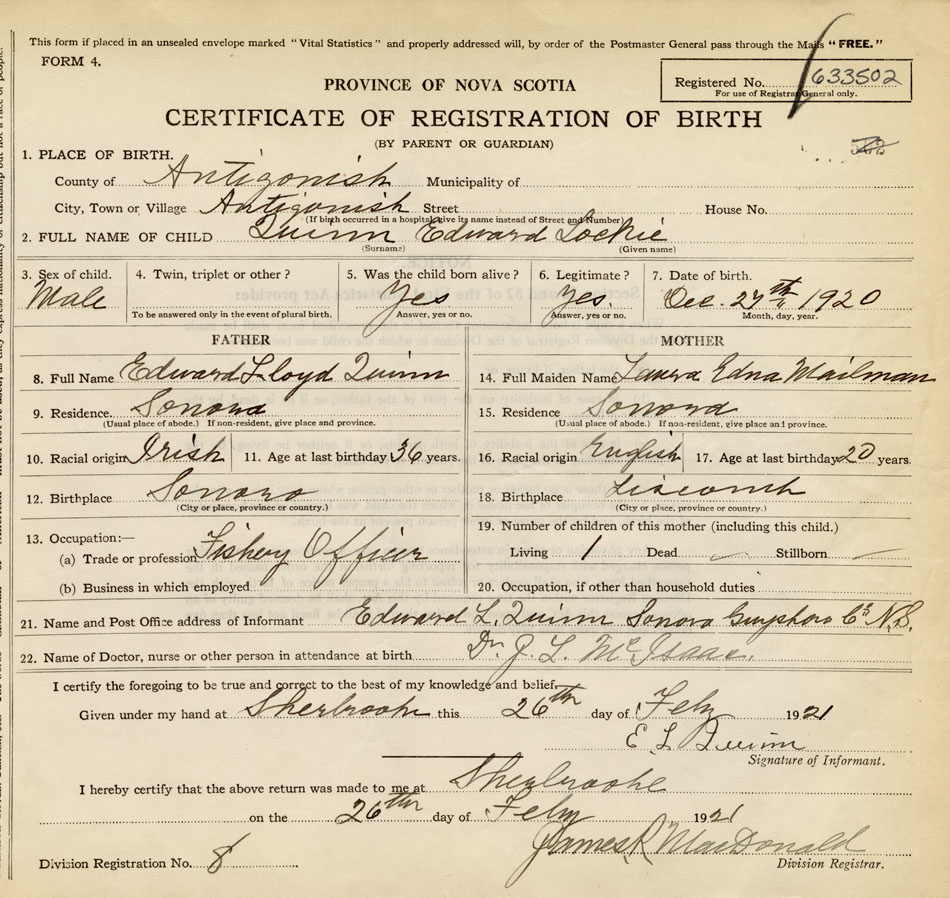 This form if placed in an unsealed envelope marked "Vital Statistics" and properly addressed will, by order of the Postmaster General pass through the Mails "FREE."
FORM 4.
Registered No. 633502
For use of Registrar General only.
PROVINCE OF NOVA SCOTIA
CERTIFICATE OF REGISTRATION OF BIRTH
(BY PARENT OR GUARDIAN)
1. PLACE OF BIRTH.
County of Antigonish Municipality of
City, Town or Village Antigonish Street House No.
(If birth occurred in a hospital give its name instead of Street and Number)
2. FULL NAME OF CHILD Quinn Edward Lockie
(Surname) (Given name)
3. Sex of child. 4. Twin, triplet or other? 5. Was the child born alive? 6. Legitimate? 7. Date of birth.
Male Yes Yes. Dec. 27th 1920
To be answered only in the event of plural birth. Answer, yes or no. Answer, yes or no. Month, day, year.
FATHER
8. Full Name Edward Lloyd Quinn
9. Residence. Sonora
(Usual place of abode.) If non-resident, give place and province.
10. Racial origin Irish 11. Age at last birthday 36 years.
12. Birthplace Sonora
(City or place, province or country.)
13. Occupation:—
(a) Trade or profession Fishery Officer
(b) Business in which employed
MOTHER
14. Full Maiden Name Laura Edna Mailman
15. Residence Sonora
(Usual place of abode.) If non-resident, give place and province.
16. Racial origin English 17. Age at last birthday 20 years.
18. Birthplace Liscomb
(City or place, province or country.)
19. Number of children of this mother (including this child.)
Living 1 Dead — Stillborn —
20. Occupation, if other than household duties
21. Name and Post Office address of Informant Edward L. Quinn Sonora Guysboro Co N.S.
22. Name of Doctor, nurse or other person in attendance at birth Dr. J. L. McIsaac.
I certify the foregoing to be true and correct to the best of my knowledge and belief.
Given under my hand at Sherbrooke this 26th day of Feby 1921
E L Quinn
Signature of Informant.
I hereby certify that the above return was made to me at Sherbrooke
on the 26th day of Feby 1921
James R MacDonald
Division Registration No. 8 Division Registrar.